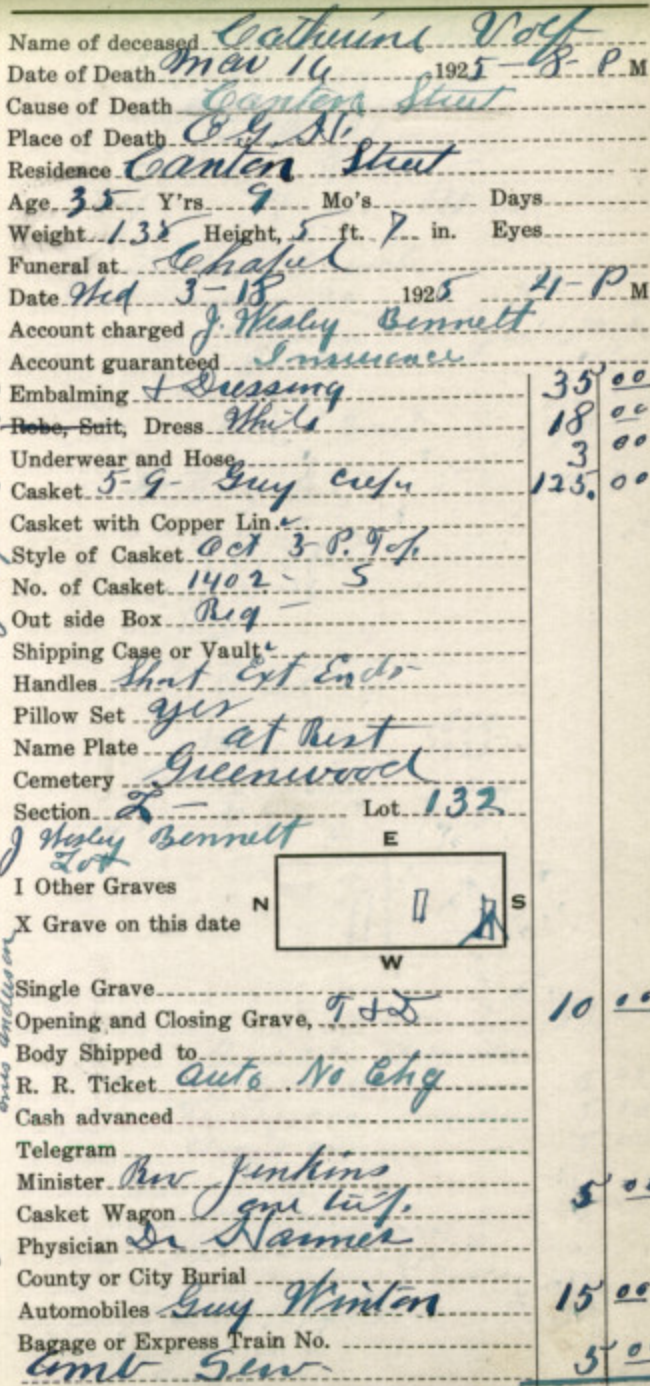 Name of deceased Catherine Volf
Date of Death Mar 16 1925 - 8 - P M
Cause of Death Canton Street
Place of Death E.G.H.
Residence Canton Street
Age 35 Y'rs 9 Mo's Days
Weight 135 Height, 5 ft. 7 in. Eyes
Funeral at Chapel
Date Wed 3-18 1925 4 - P M
Account charged J. Wesley Bennett
Account guaranteed Insurance
Embalming & Dressing 35 00
Robe, Suit, Dress White 18 00
Underwear and Hose 3 00
Casket 5-9- Grey Crepe 125. 00
Casket with Copper Lin.
Style of Casket Oct 3 P. Top
No. of Casket 1402 - S
Out side Box Reg -
Shipping Case or Vault
Handles Short Ext Ends -
Pillow Set yes
Name Plate at Rest
Cemetery Greenwood
Section L - Lot 132
J Wesley Bennett
Lot
E
I Other Graves
N S
X Grave on this date
W
Single Grave
Opening and Closing Grave, 10 00
Body Shipped to
R. R. Ticket Auto. No Chg
Cash advanced
Telegram
Minister Rev Jenkins 5 00
Casket Wagon one trip.
Physician Dr
County or City Burial
Automobiles Guy Winton 15 00
Bagage or Express Train No.
Amb Serv. 5 0